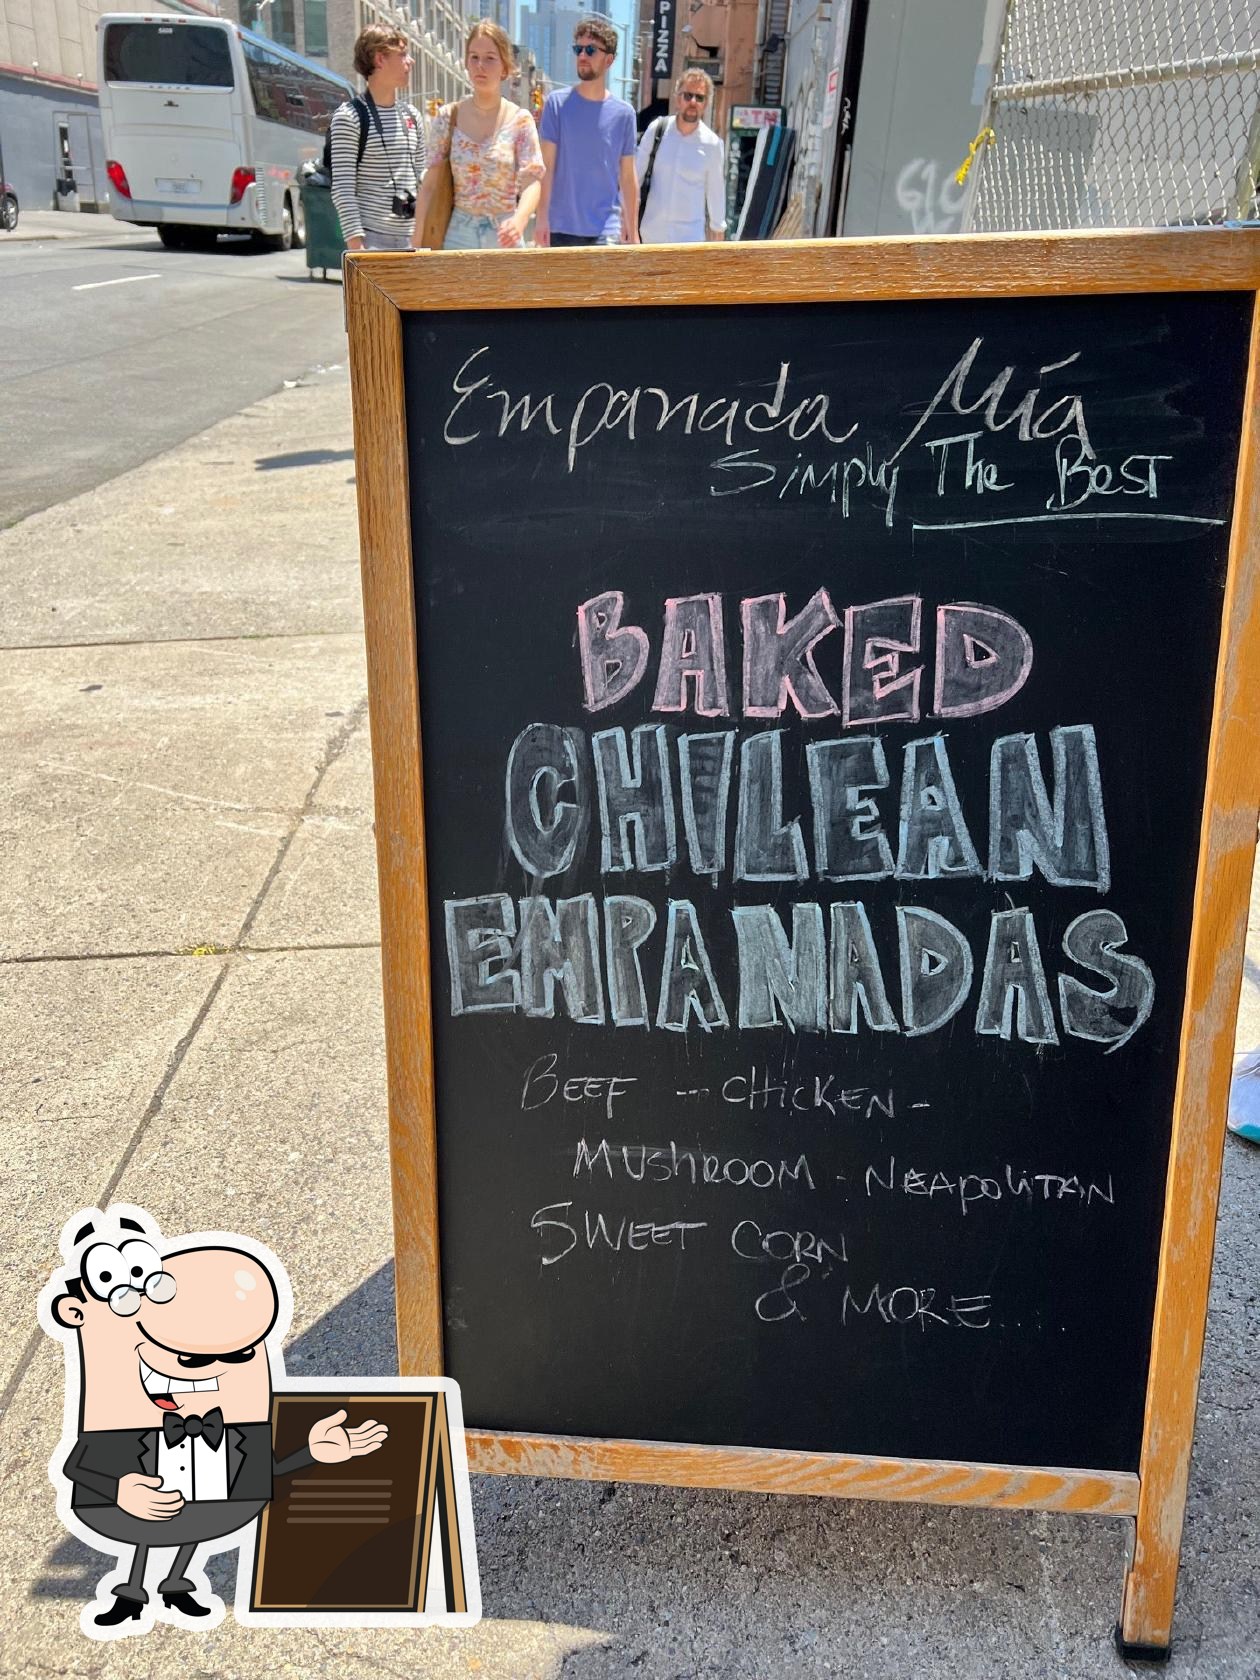 PIZZA
ATM
Empanada Mía
Simply The Best
BAKED
CHILEAN
EMPANADAS
BEEF -- CHICKEN -
MUSHROOM - NEAPOLITAN
SWEET CORN
& MORE....